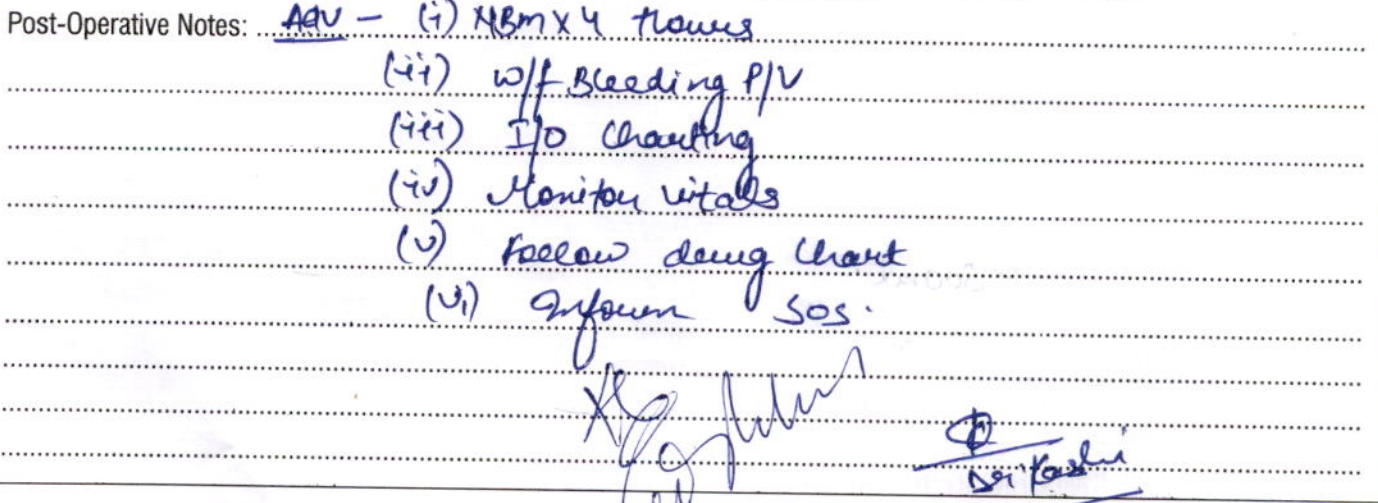 Post-Operative Notes: Adv - (i) NBM x 4 hours
(ii) w/f Bleeding P/V
(iii) I/O Charting
(iv) Monitor vitals
(v) Follow drug Chart
(vi) Inform SOS.
Dr